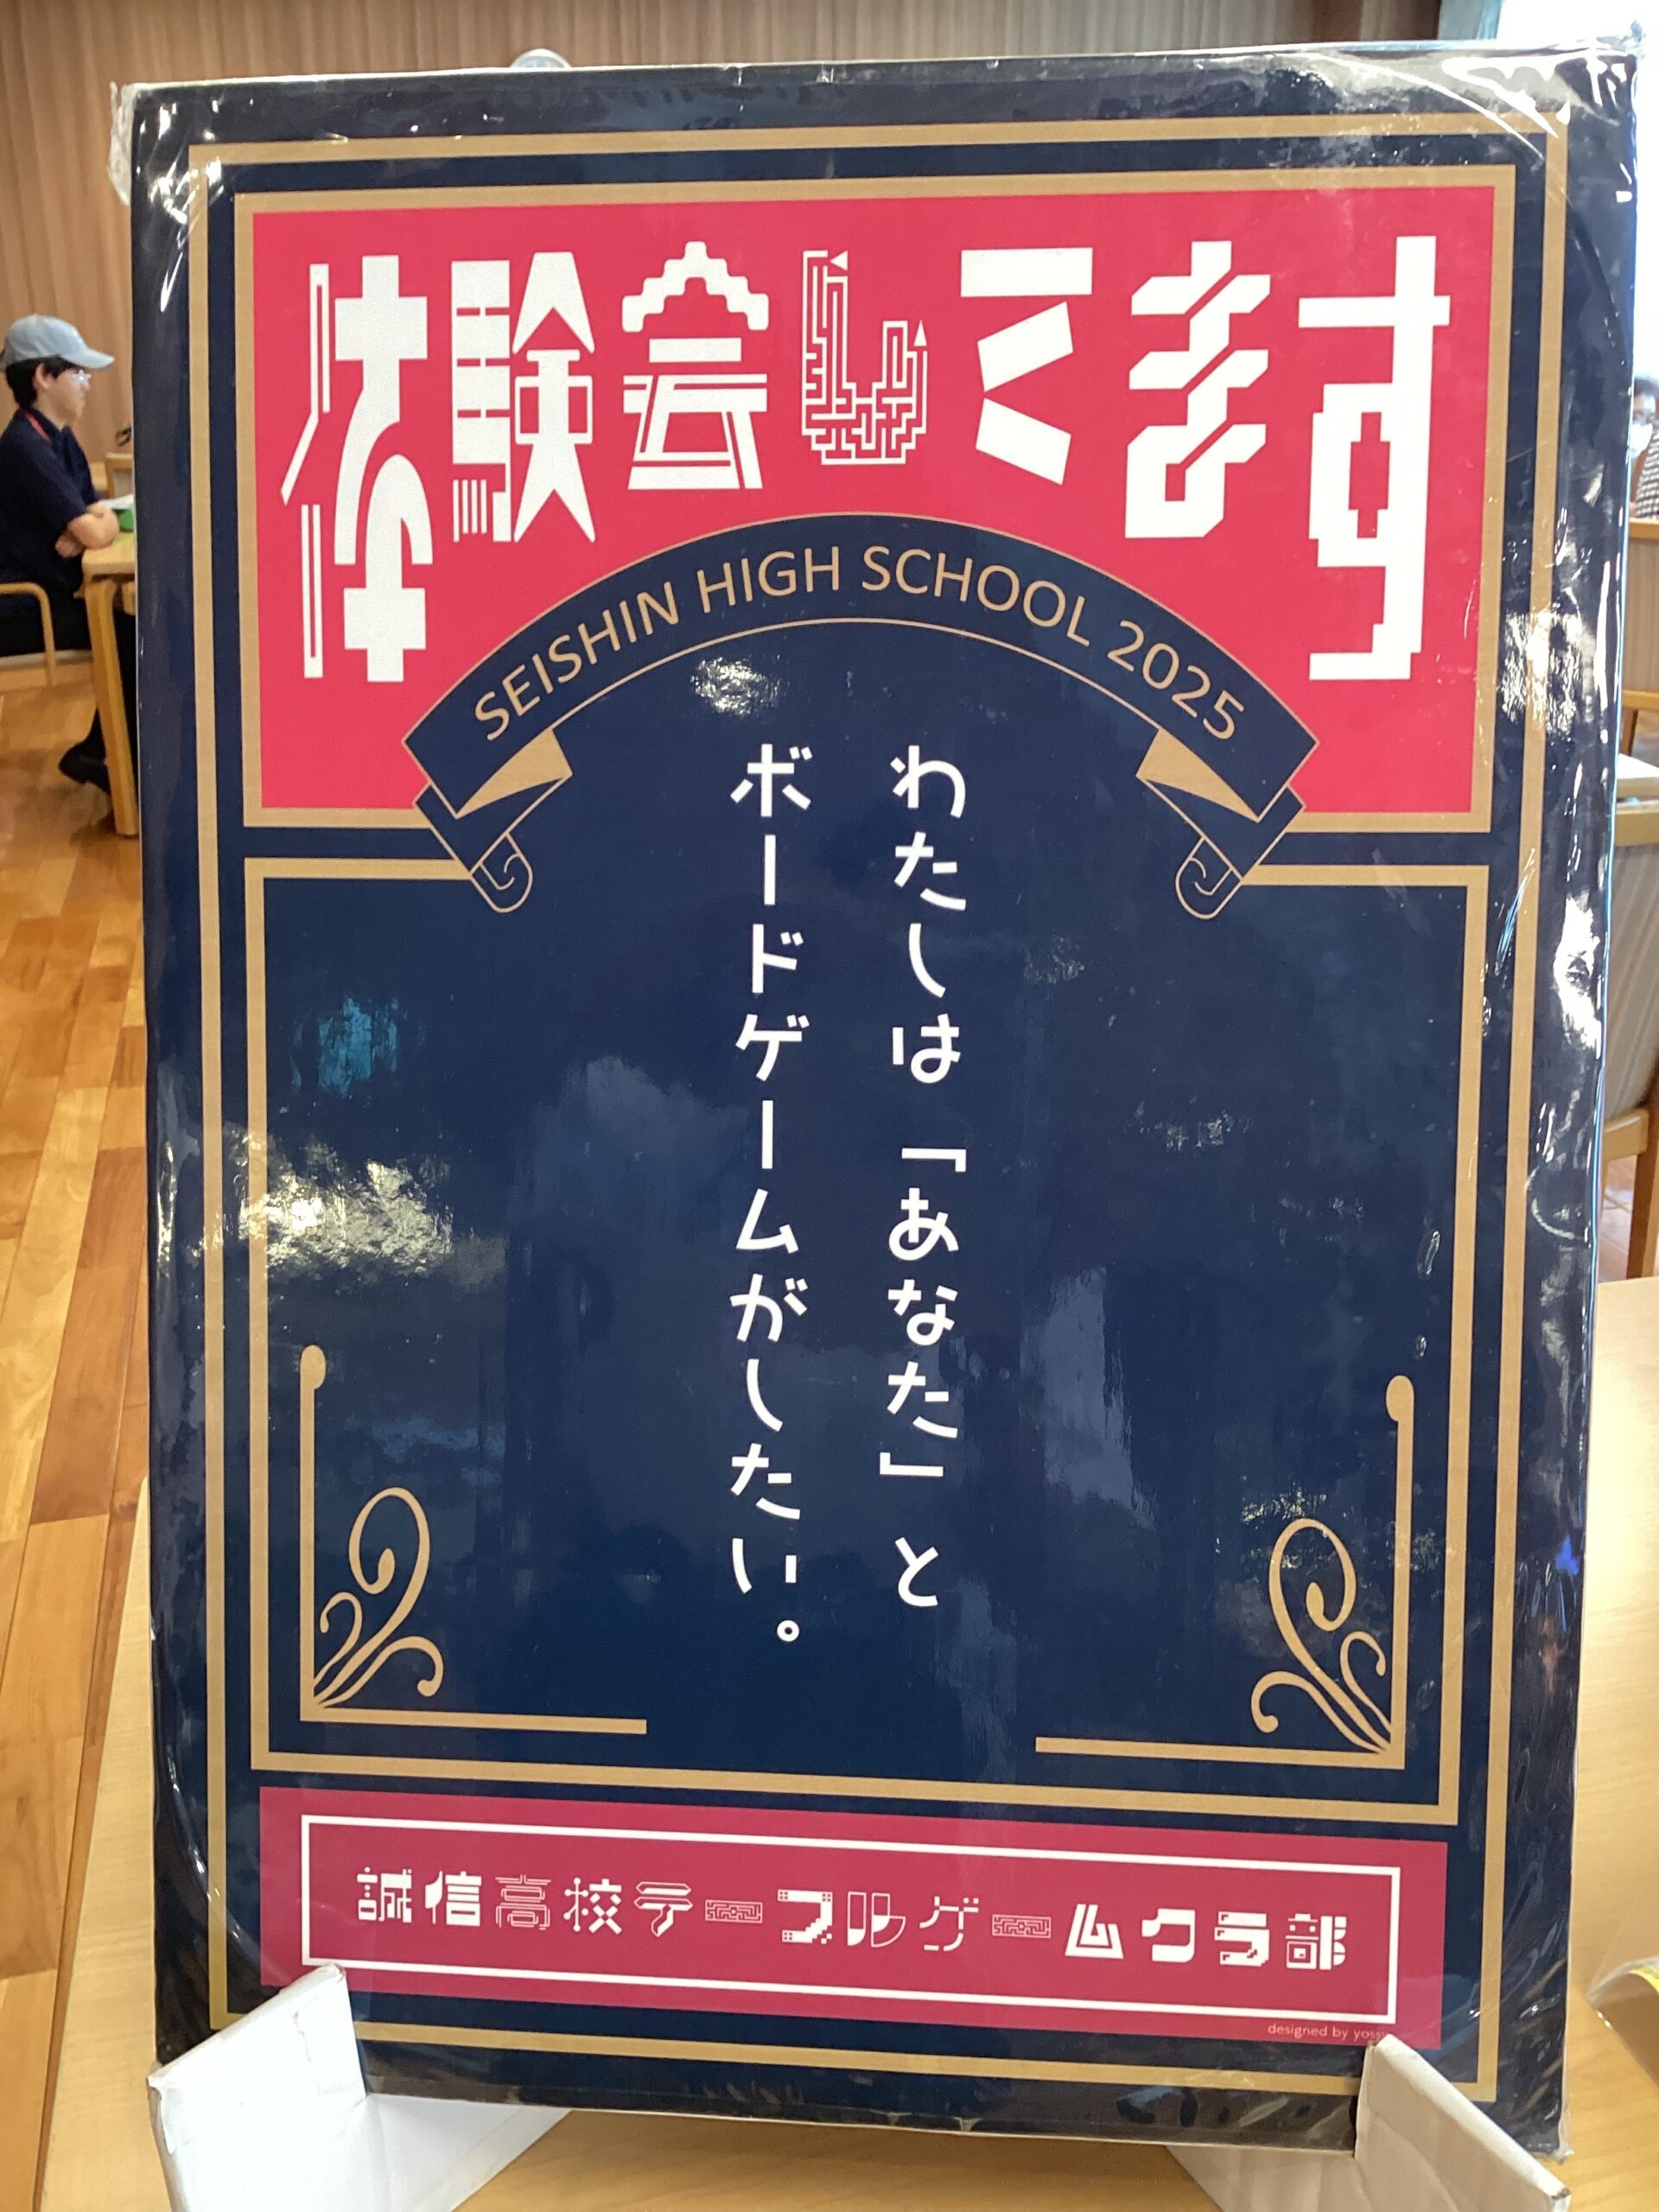 体験会してます
SEISHIN HIGH SCHOOL 2025
わたしは「あなた」と
ボードゲームがしたい。
誠信高校テーブルゲームクラブ部
designed by